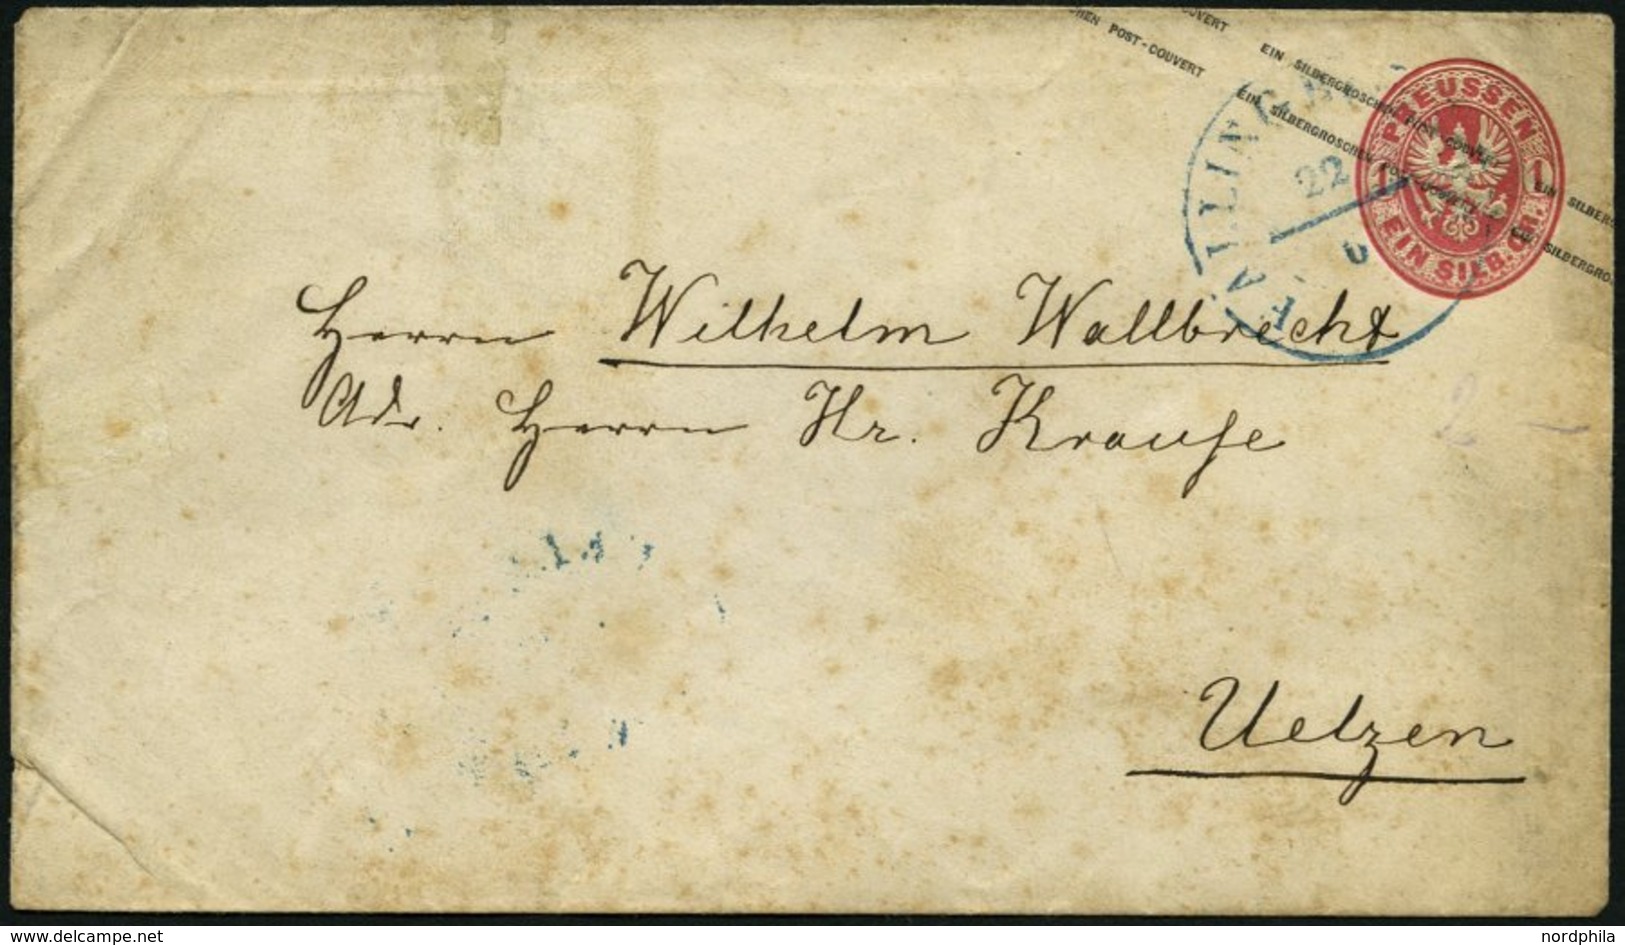 COUVERT EIN SILBERGROSCHEN POST-COUVERT EIN SILBERG
CHEN POST-COUVERT EIN SILBERGROSCHEN POST-COUVERT EIN SILBERGRO
PREUSSEN
1 1
EIN SILB. GR.
22
Herrn Wilhelm Wallbrecht
Adr. Herrn Hr. Krause
2 -
Uelzen
www.delcampe.net
nordphila